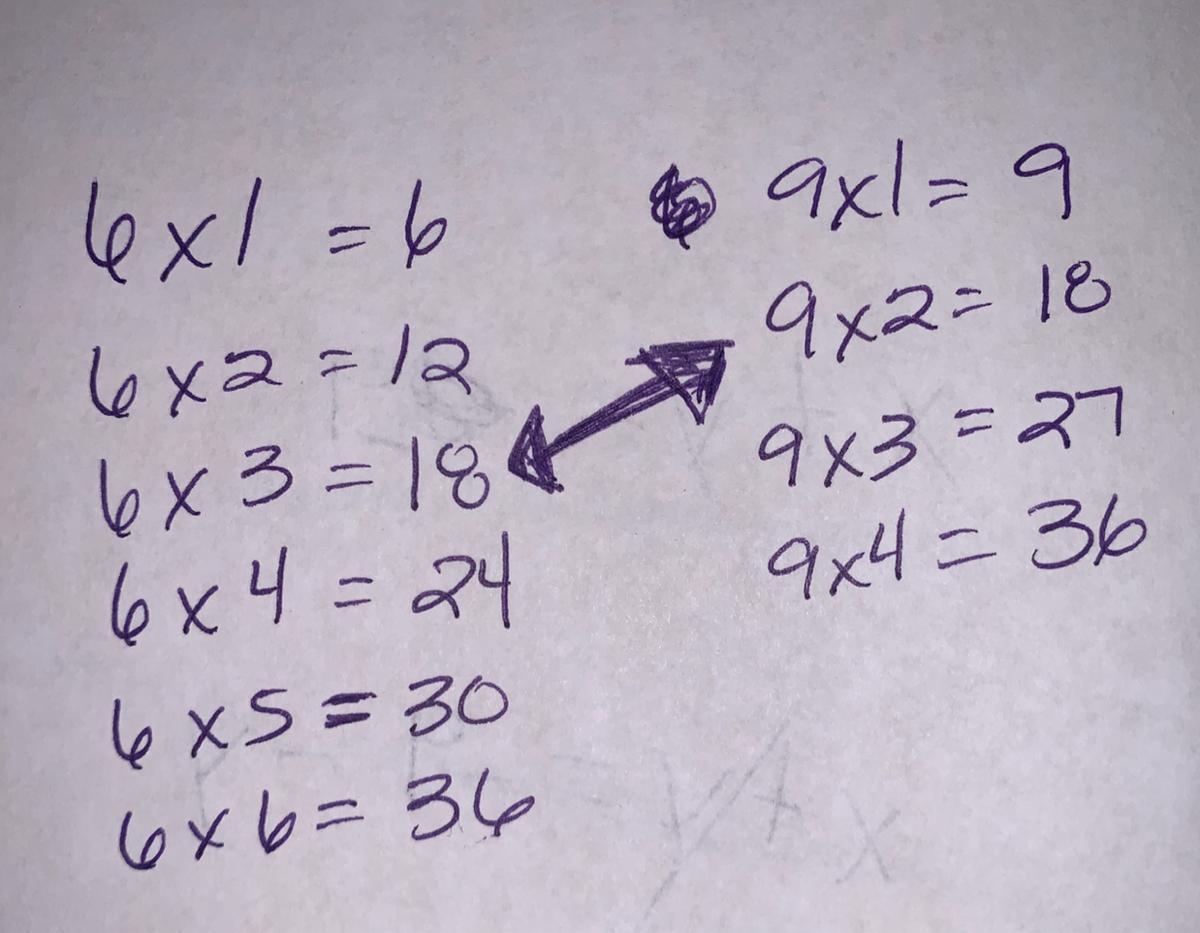 6 x 1 = 6
6 x 2 = 12
6 x 3 = 18
6 x 4 = 24
6 x 5 = 30
6 x 6 = 36
9 x 1 = 9
9 x 2 = 18
9 x 3 = 27
9 x 4 = 36